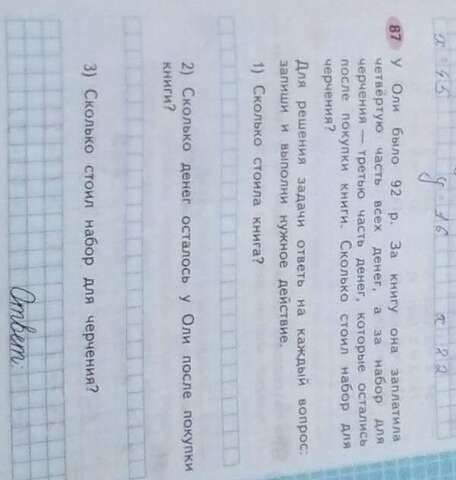 x = 45 y = 16 x = 82
87 У Оли было 92 р. За книгу она заплатила
четвёртую часть всех денег, а за набор для
черчения — третью часть денег, которые остались
после покупки книги. Сколько стоил набор для
черчения?
Для решения задачи ответь на каждый вопрос:
запиши и выполни нужное действие.
1) Сколько стоила книга?
2) Сколько денег осталось у Оли после покупки
книги?
3) Сколько стоил набор для черчения?
Ответ: